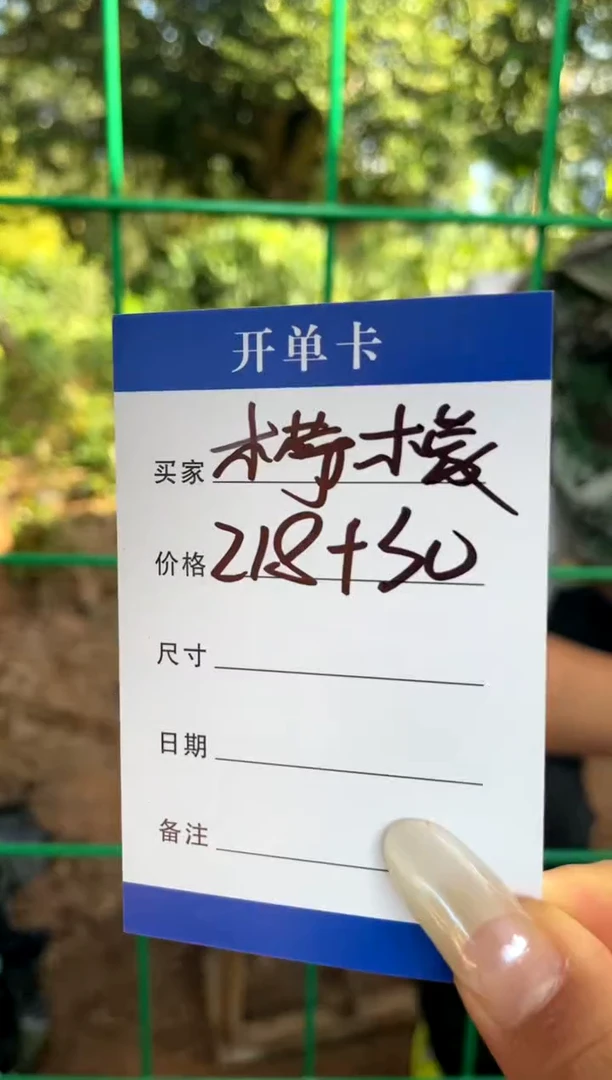 开单卡
买家 柠檬
价格 218+50
尺寸
日期
备注